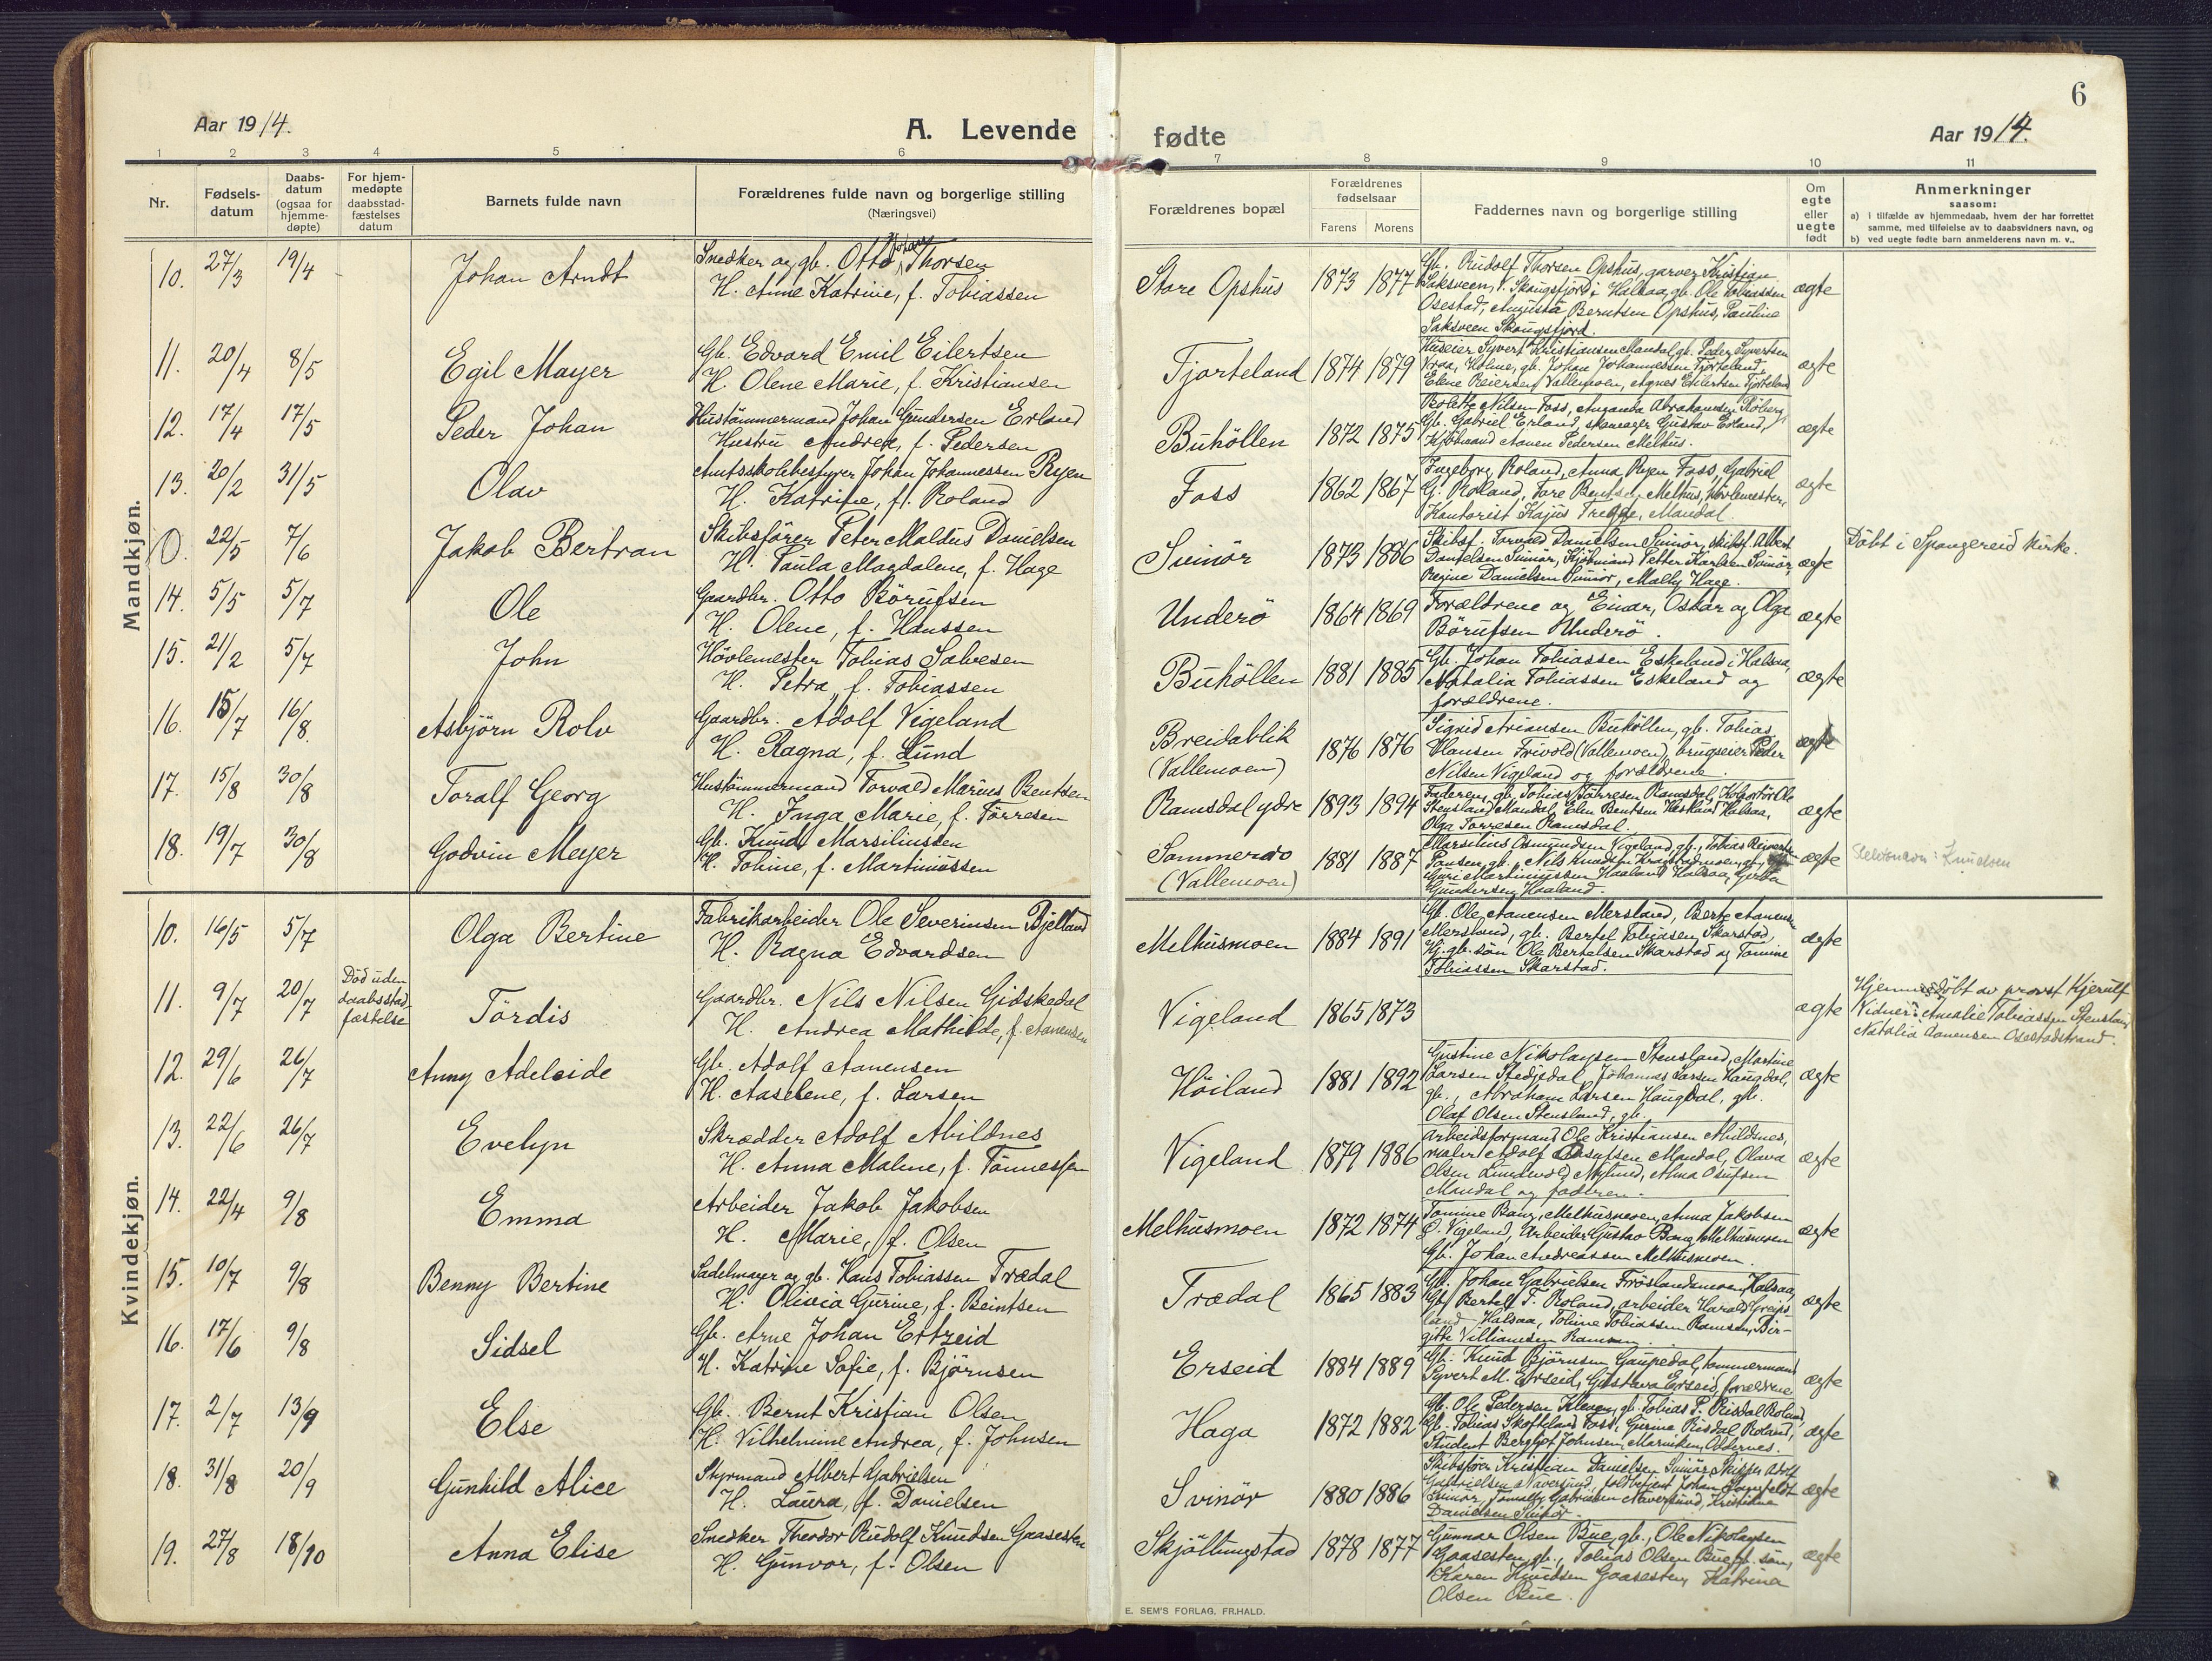 6
Aar 1914.
A. Levende fødte
Aar 1914.
1 2 3 4 5 6 7 8 9 10 11
Nr.
Fødsels-
datum
Daabs-
datum
(ogsaa for
hjemme-
døpte)
For hjem-
medøpte
daabsstad-
fæstelses
datum
Barnets fulde navn
Forældrenes fulde navn og borgerlige stilling
(Næringsvei)
Forældrenes bopæl
Forældrenes
fødselsaar
Farens Morens
Faddernes navn og borgerlige stilling
Om
egte
eller
uegte
født
Anmerkninger
saasom:
a) i tilfælde av hjemmedaab, hvem der har forrettet
samme, med tilføielse av to daabsvidners navn, og
b) ved uegte fødte barn anmelderens navn m. v..
Mandkjøn.
10. 27/3 19/4 Johan Arndt
Snedker og gb. Otto Johan Thorsen
H. Anne Katrine, f. Tobiassen
Store Opshus 1873 1877
Gb. Rudolf Thorsen Opshus, garver Kristian
Saksveen, Skougsfjord i Halsaa, gb. Ole Tobiassen
Osestad, Augusta Berntsen Opshus, Pauline
Saksveen Skougsfjord.
ægte
11. 20/4 8/5 Egil Mayer
Gb. Edvard Emil Eilertsen
H. Olene Marie, f. Kristiansen
Fjorteland 1874 1879
Huseier Syvert Kristiansen Mandal, gb. Peder Syvertsen
Vraa, Holme, gb. Johan Johannessen Fjorteland,
Elene Reiersen Vallemoen, Agnes Eilertsen Fjorteland
ægte
12. 17/4 17/5 Peder Johan
Hustømmermand Johan Gundersen Erland
Hustru Andrea, f. Pedersen
Buhöllen 1872 1875
Bolette Nilsen Foss, Amanda Abrahamsen
Gb. Gabriel Erland, skomager Gustav Erland,
Kjöbmand Aanen Pedersen Melhus.
ægte
13. 20/2 31/5 Olav
Amtsskolebestyrer Johan Johannessen Ryen
H. Katrine, f. Roland
Foss 1862 1867
Ingeborg Roland, Anna Ryen Foss, Gabriel
G. Roland, Tore Bentsen Melhus, Hövlemester,
Kantorist Kajus Tregde, Mandal.
ægte
0. 22/5 7/6 Jakob Bertran
Skibsfører Peter Maldus Danielsen
H. Paula Magdalene, f. Hage
Svinör 1873 1886
Skibsf. Torvald Danielsen Svinör, skibsf. Albert
Danielsen Svinör, Kjöbmand Petter Karlsen Svinör,
Regine Danielsen Svinör, Mally Hage.
ægte
Döbt i Spangereid kirke.
14. 5/5 5/7 Ole
Gaardbr. Otto Börufsen
H. Olene, f. Hanssen
Underö 1864 1869
Forældrene og Einar, Oskar og Olga
Börufsen Underö.
ægte
15. 21/2 5/7 John
Hövlemester Tobias Salvesen
H. Petra, f. Tobiassen
Buhöllen 1881 1885
Gb. Johan Tobiassen Eskeland i Halsaa,
Natalia Tobiassen Eskeland og
forældrene.
ægte
16. 15/7 16/8. Asbjörn Rolv
Gaardbr. Adolf Vigeland
H. Ragna, f. Lund
Breidablik
(Vallemoen)
1876 1876
Sigrid Ariansen Buhöllen, gb. Tobias
Hansen Frivold (Vallemoen), brugseier Peder
Nilsen Vigeland og forældrene.
ægte
17. 15/8 30/8 Toralf Georg
Hustømmermand Torvald Marius Bentsen
H. Inga Marie, f. Törresen
Ramsdal ydre 1893 1894
Faderen, gb. Tobias Törresen Ramsdal, Kolportör Ole
Stensland Mandal, Elen Bentsen Halsaa,
Olga Törresen Ramsdal.
ægte
18. 19/7 30/8 Godvin Meyer
Gb. Knud Marsiliussen
H. Tobine, f. Martiniussen
Sommerro
(Vallemoen)
1881 1887
Marsilius Osmundsen Vigeland, gb., Tobias
gb., Nils Knudsen
Guri Martiniussen Haaland Halsaa,
Gundersen Haaland.
ægte
Slektsnavn: Knudsen
Kvindekjøn.
10. 16/5 5/7 Olga Bertine
Fabrikarbeider Ole Severinsen Bjelland
H. Ragna Edvardsen
Melhusmoen 1884 1891
Gb. Ole Aanensen Mersland, Berte Aanensen
Mersland, gb. Bertel Tobiassen Skarstad,
gb. sön Ole Bertelsen Skarstad og Tomine
Tobiassen Skarstad.
ægte
11. 9/7 20/7
Död uden
daabsstad
fæstelse
Tördis
Gaardbr. Nils Nilsen Gidskedal
H. Andrea Mathilde, f. Aanensen
Vigeland 1865 1873
ægte
Hjemmedöbt av provst Kjerulf
Vidner: Amalie Tobiassen Stensland,
Natalia Aanensen Osestadstrand.
12. 29/6 26/7 Anny Adeleide
Gb. Adolf Aanensen
H. Aaselene, f. Larsen
Höiland 1881 1892
Gustine Nikolaysen Stensland, Martine
Larsen Stedjedal, Johannes Larsen Haugdal,
gb., Abraham Larsen Haugdal, gb.
Olaf Olsen Stensland, gb.
ægte
13. 22/6 26/7 Evelyn
Skrædder Adolf Abildnes
H. Anna Maline, f. Tönnessen
Vigeland 1879 1886
Arbeidsformand Ole Kristiansen Abildsnes,
maler Adolf Osufsen Mandal, Olava
Olsen Lundevold Nylund, Alma Osufsen
Mandal og faderen.
ægte
14. 22/4 9/8 Emma
Arbeider Jakob Jakobsen
H. Marie, f. Olsen
Melhusmoen 1872 1874
Tomine Bang, Melhusmoen, Anna Jakobsen
Ö. Vigeland, Arbeider Gustav Bang Melhusmoen
Gb. Johan Andreassen Melhusmoen.
ægte
15. 10/7 9/8 Benny Bertine
Sadelmager og gb. Hans Tobiassen Trædal
H. Olivia Gurine, f. Beintsen
Trædal 1865 1883
Gb. Johan Gabrielsen Fröslandsmoen, Halsaa,
Gb. Bertel T. Roland, arbeider Harald Greips-
land, Halsaa, Tobine Tobiassen Ramsen, Bir-
gitte Villiamsen
ægte
16. 17/6 9/8 Sidsel
Gb. Arne Johan Ertzeid
H. Katrine Sofie, f. Björnsen
Erseid 1884 1889
Gb. Knud Björnsen Gaupedal, tømmermand
Syvert M. Erseid, Gustava Erseid, forældrene
ægte
17. 2/7 13/9 Else
Gb. Bernt Kristian Olsen
H. Vilhelmine Andrea, f. Johnsen
Haga 1872 1882
Gb. Ole Pedersen Kleven, gb. Tobias P. Risdal Roland,
Gb. Tobias Skofteland Foss, Gurine Risdal Roland,
Student Bergljot Johnsen,
ægte
18. 31/8 20/9 Gunhild Alice
Styrmand Albert Gabrielsen
H. Laura, f. Danielsen
Svinör 1880 1886
Skibsförer Kristian Danielsen Svinör, Skipper Adolf
Gabrielsen Naversund, Johan
Svinör, Gabrielsen Naversund, Kristiane
Danielsen Svinör.
ægte
19. 27/8 18/10 Anna Elise
Snedker Theodor Rudolf Knudsen Gaasesten
H. Gunvor, f. Olsen
Skjöllingstad 1878 1877
Gunnar Olsen Bue, gb., Ole Nikolaysen
Gaasesten, gb., Tobias Olsen Bue, gb. sön,
Karen Knudsen Gaasesten, Katrina
Olsen Bue.
ægte
E. SEM'S FORLAG. FR.HALD.